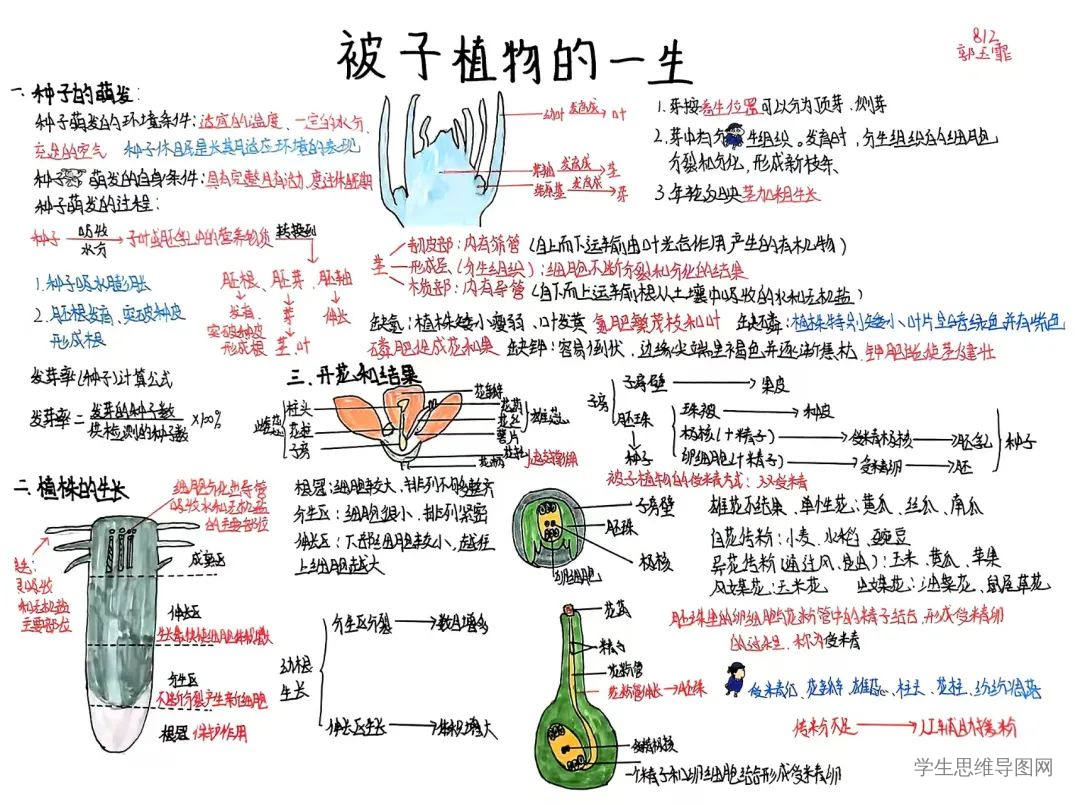 被子植物的一生
812
郭玉霏
一、种子的萌发:
种子萌发的环境条件:适宜的温度、一定的水分、
充足的空气 种子休眠是长其月适应环境的表现
种子萌发的自身条件:具有完整且有活力,度过休眠期
种子萌发的过程:
种子 吸收水分 子叶或胚乳中的营养物质 转换到
1.种子吸水膨胀
2.胚根发育,突破种皮
形成根
胚根、胚芽、胚轴
发育 芽 伸长
突破种皮
形成根 茎、叶
发芽率(种子)计算公式
发芽率=发芽的种子数/供检测的种子数×100%
幼叶 发育成 叶
芽轴 发育成 茎
芽原基 发育成 芽
1.芽按着生位置可以分为顶芽、侧芽
2.芽中有分生组织。发育时,分生组织的细胞
分裂和分化,形成新枝条、
3.年轮这块茎加粗生长
茎
韧皮部:内有筛管(自上而下运输由叶光合作用产生的有机物)
形成层(分生组织):细胞不断分裂和分化的结果
木质部:内有导管(自下而上运输根从土壤中吸收的水和无机盐)
缺氮:植株矮小瘦弱、叶发黄 氮肥繁茂枝和叶 缺磷:植株特别矮小、叶片呈暗绿色并有紫色
磷肥促成花和果 缺钾:容易倒伏,边缘尖端呈褐色并逐渐焦枯,钾肥能使茎健壮
三、开花和结果
雌蕊
柱头
花柱
子房
花瓣
花药
花丝
雄蕊
萼片
花托
花柄
子房
子房壁 果皮
胚珠
种子
珠被 种皮
极核(+精子) 受精极核 胚乳
卵细胞(+精子) 受精卵 胚
种子
被子植物的受精方式:双受精
二、植株的生长
细胞分化出导管
吸收水和无机盐
的主要部位
成熟区
伸长区
生长最快使细胞体积增大
分生区
不断分裂产生新细胞
根冠 保护作用
根毛:
是吸收
和无机盐
主要部位
根冠:细胞较大,排列不够整齐
分生区:细胞很小,排列紧密
伸长区:下部细胞较小,越往
上细胞越大
幼根
生长
分生区分裂 数目增多
伸长区生长 体积增大
子房壁
胚珠
极核
卵细胞
雄花不结果、单性花:黄瓜、丝瓜、南瓜
自花传粉:小麦、水稻、豌豆
异花传粉(通过风、昆虫):玉米、黄瓜、苹果
风媒花:玉米花 虫媒花:油菜花、鼠尾草花
胚珠里的卵细胞与花粉管中的精子结合,形成受精卵
的过程,称为受精
花药
精子
花粉管
花粉管伸长 胚珠
受精极核
一个精子和卵细胞结合形成受精卵
受精后,花瓣、雄蕊、柱头、花柱、纷纷凋落
传粉不足 人工辅助授粉
学生思维导图网